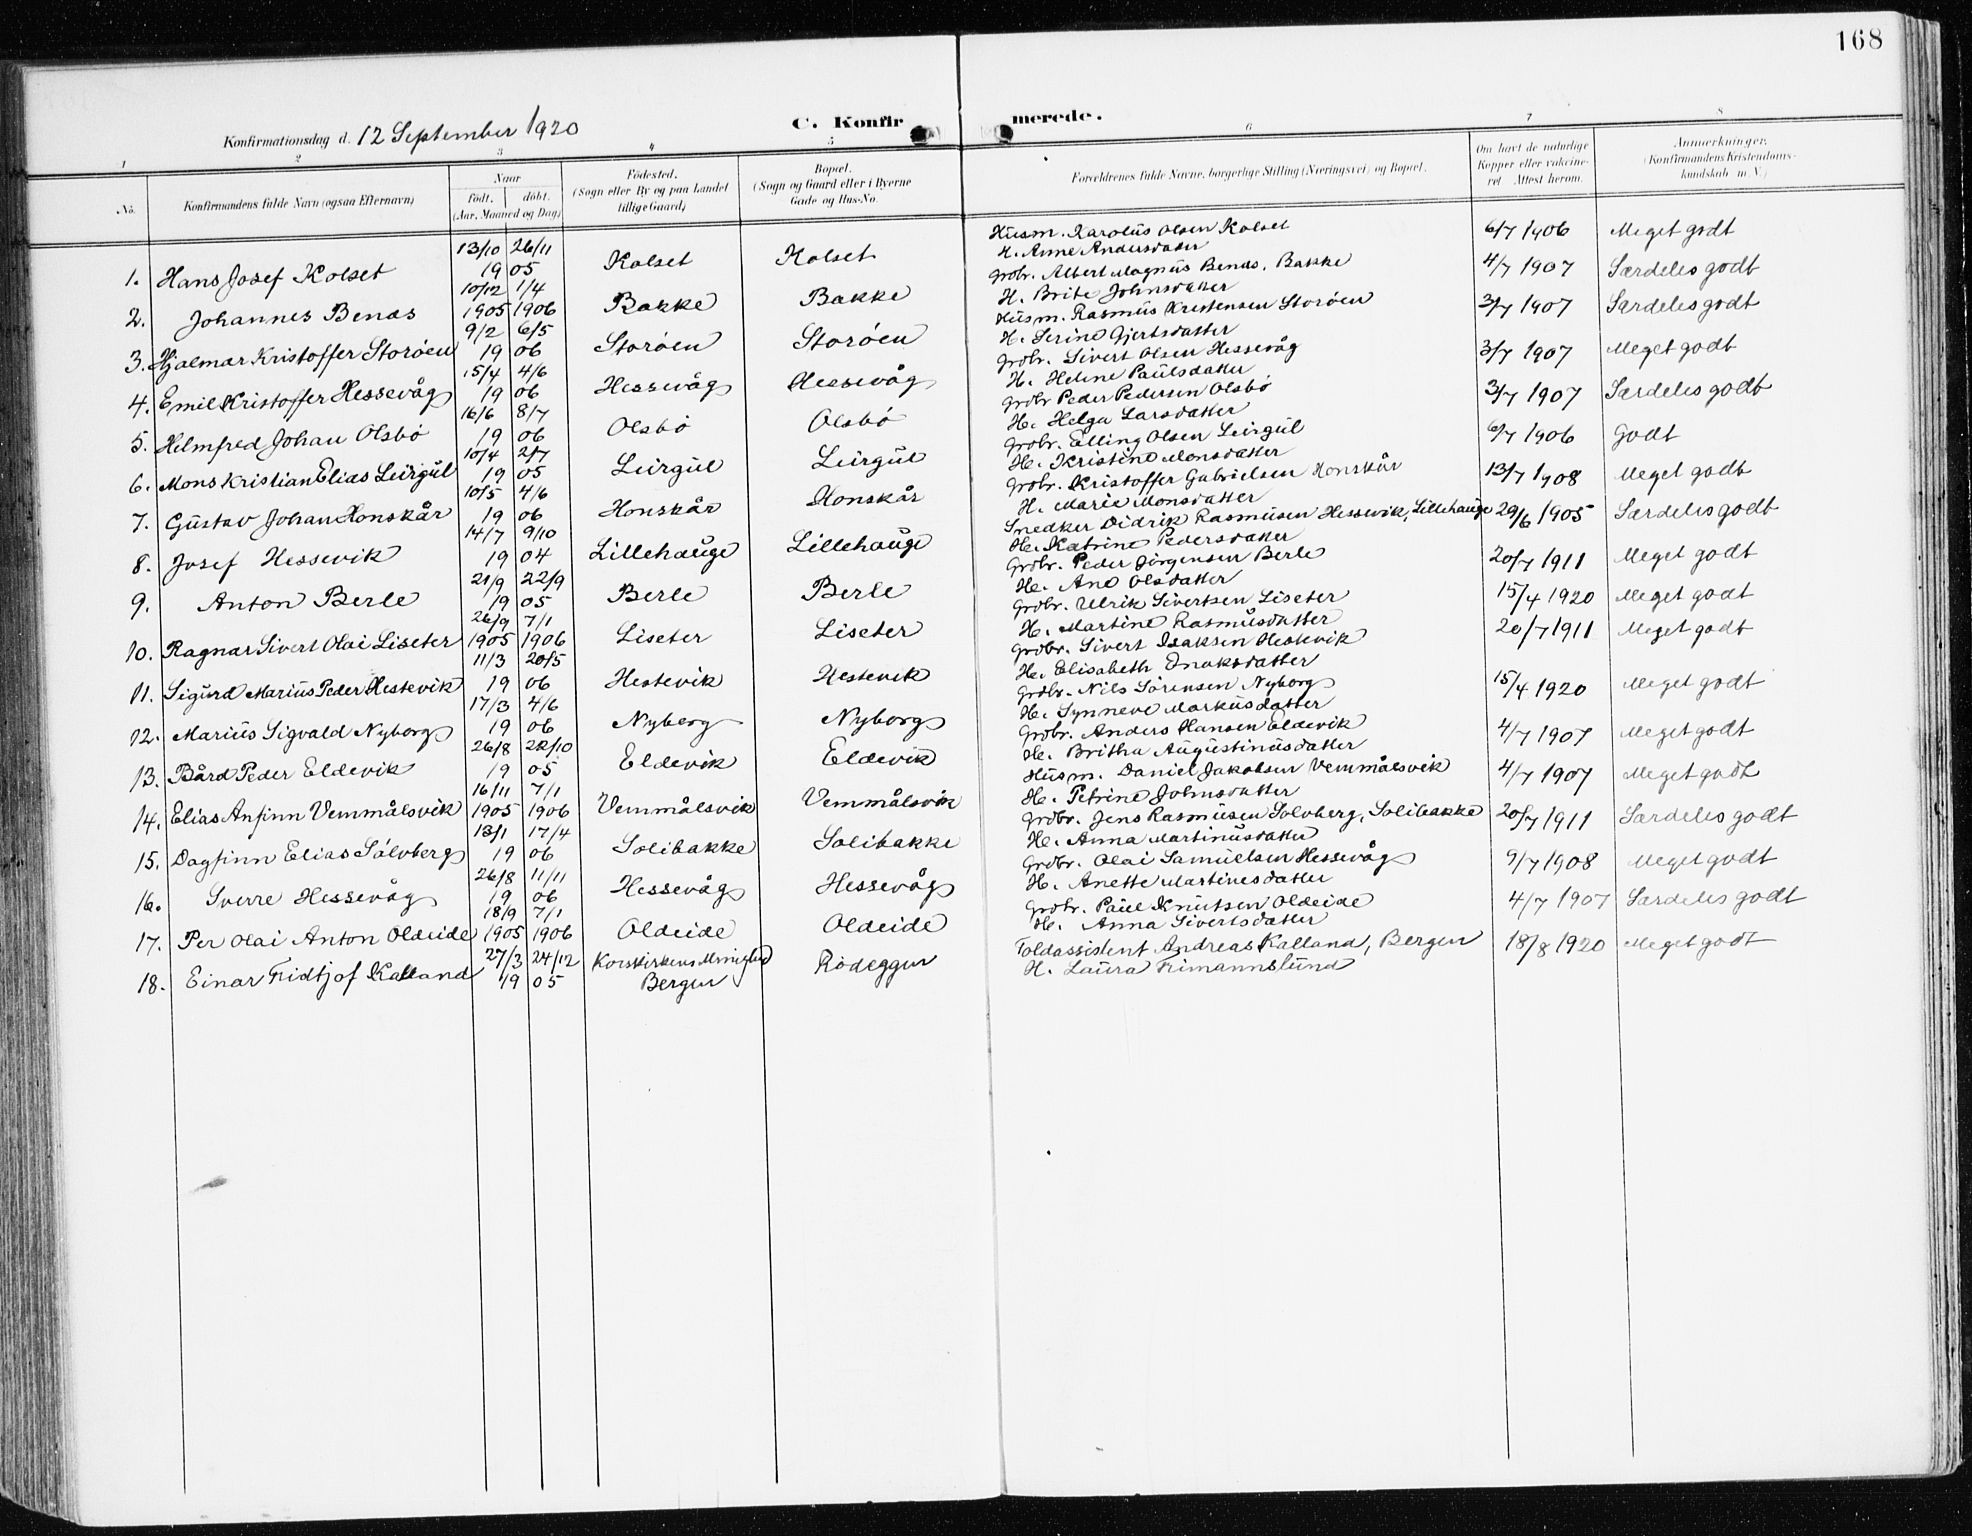 168
Konfirmationsdag d. 12 September 1920
C. Konfirmerede.
1 2 3 4 5 6 7 8
No. Konfirmandens fulde Navn (ogsaa Efternavn) Naar født. døbt. (Aar, Maaned og Dag) Fødested. (Sogn eller By og paa Landet tillige Gaard) Bopæl. (Sogn og Gaard eller i Byerne Gade og Hus-No. Forældrenes fulde Navne, borgerlige Stilling (Næringsvei) og Bopæl. Om havt de naturlige Kopper eller vaccineret. Attest herom. Anmerkninger. (Konfirmandens Kristendomskundskab m. V.)
1. Hans Josef Kolset 13/10 26/11 1905 Kolset Kolset Husm. Karolus Olsen Kolset H. Anne Andersdatter 6/7 1906 Meget godt
2. Johannes Benas 10/12 1905 1/4 1906 Bakke Bakke Grdbr. Albert Magnus Benas, Bakke H. Brite Johnsdatter 4/7 1907 Særdeles godt
3. Hjalmar Kristoffer Storøen 9/2 6/5 1906 Storøen Storøen Husm. Rasmus Kristensen Storøen H. Serine Gjertsdatter 3/7 1907 Særdeles godt
4. Emil Kristoffer Hessevåg 15/4 4/6 1906 Hessevåg Hessevåg Grdbr. Sivert Olsen Hessevåg H. Helene Paulsdatter 3/7 1907 Meget godt
5. Helmfred Johan Olsbø 16/6 8/7 1906 Olsbø Olsbø Grdbr Peder Pedersen Olsbø H. Helga Larsdatter 3/7 1907 Særdeles godt
6. Mons Kristian Elias Leirgul 10/4 2/7 1905 Leirgul Leirgul Grdbr. Elling Olsen Leirgul H. Kristine Monsdatter 6/7 1906 Godt
7. Gustav Johan Honskår 10/5 4/6 1906 Honskår Honskår Grdbr. Kristoffer Gabrielsen Honskår H. Marie Monsdatter 13/7 1908 Meget godt
8. Josef Hessevik 14/7 9/10 1904 Lillehauge Lillehauge Snedker Didrik Rasmusen Hessevik, Lillehauge H. Katrine Pedersdatter 29/6 1905 Særdeles godt
9. Anton Berle 21/9 22/9 1905 Berle Berle Grdbr. Peder Jørgensen Berle H. Ane Olsdatter 20/7 1911 Meget godt
10. Ragnar Sivert Olai Liseter 26/9 1905 7/1 1906 Liseter Liseter Grdbr. Ulrik Sivertsen Liseter H. Martine Rasmusdatter 15/4 1920 Meget godt
11. Sigurd Marius Peder Hestevik 11/3 20/5 1906 Hestevik Hestevik Grdbr. Sivert Isaksen Hestevik H. Elisabeth Enoksdatter 20/7 1911 Meget godt
12. Marius Sigvald Nyborg 17/3 4/6 1906 Nyborg Nyborg Grdbr. Nils Sørensen Nyborg H. Synneve Markusdatter 15/4 1920 Meget godt
13. Bård Peder Eldevik 26/8 22/10 1905 Eldevik Eldevik Grdbr. Anders Hansen Eldevik H. Britha Augustinusdatter 4/7 1907 Meget godt
14. Elias Anfinn Vemmålsvik 16/11 1905 7/1 1906 Vemmålsvik Vemmålsvik Husm. Daniel Jakobsen Vemmålsvik H. Petrine Johnsdatter 4/7 1907 Meget godt
15. Dagfinn Elias Sølvberg 13/1 17/4 1906 Solibakke Solibakke Grdbr. Jens Rasmusen Solvberg, Solibakke H. Anna Martinusdatter 20/7 1911 Særdeles godt
16. Sverre Hessevåg 26/8 11/11 1906 Hessevåg Hessevåg Grdbr. Olai Samuelsen Hessevåg H. Anette Martinesdatter 9/7 1908 Meget godt
17. Per Olai Anton Oldeide 18/9 1905 7/1 1906 Oldeide Oldeide Grdbr. Paul Knutsen Oldeide H. Anna Sivertsdatter 4/7 1907 Særdeles godt
18. Einar Fridtjof Kalland 27/3 24/12 1905 Korskirkens Bergen Rødeggen Toldassistent Andreas Kalland, Bergen H. Laura Frimannslund 18/8 1920 Meget godt